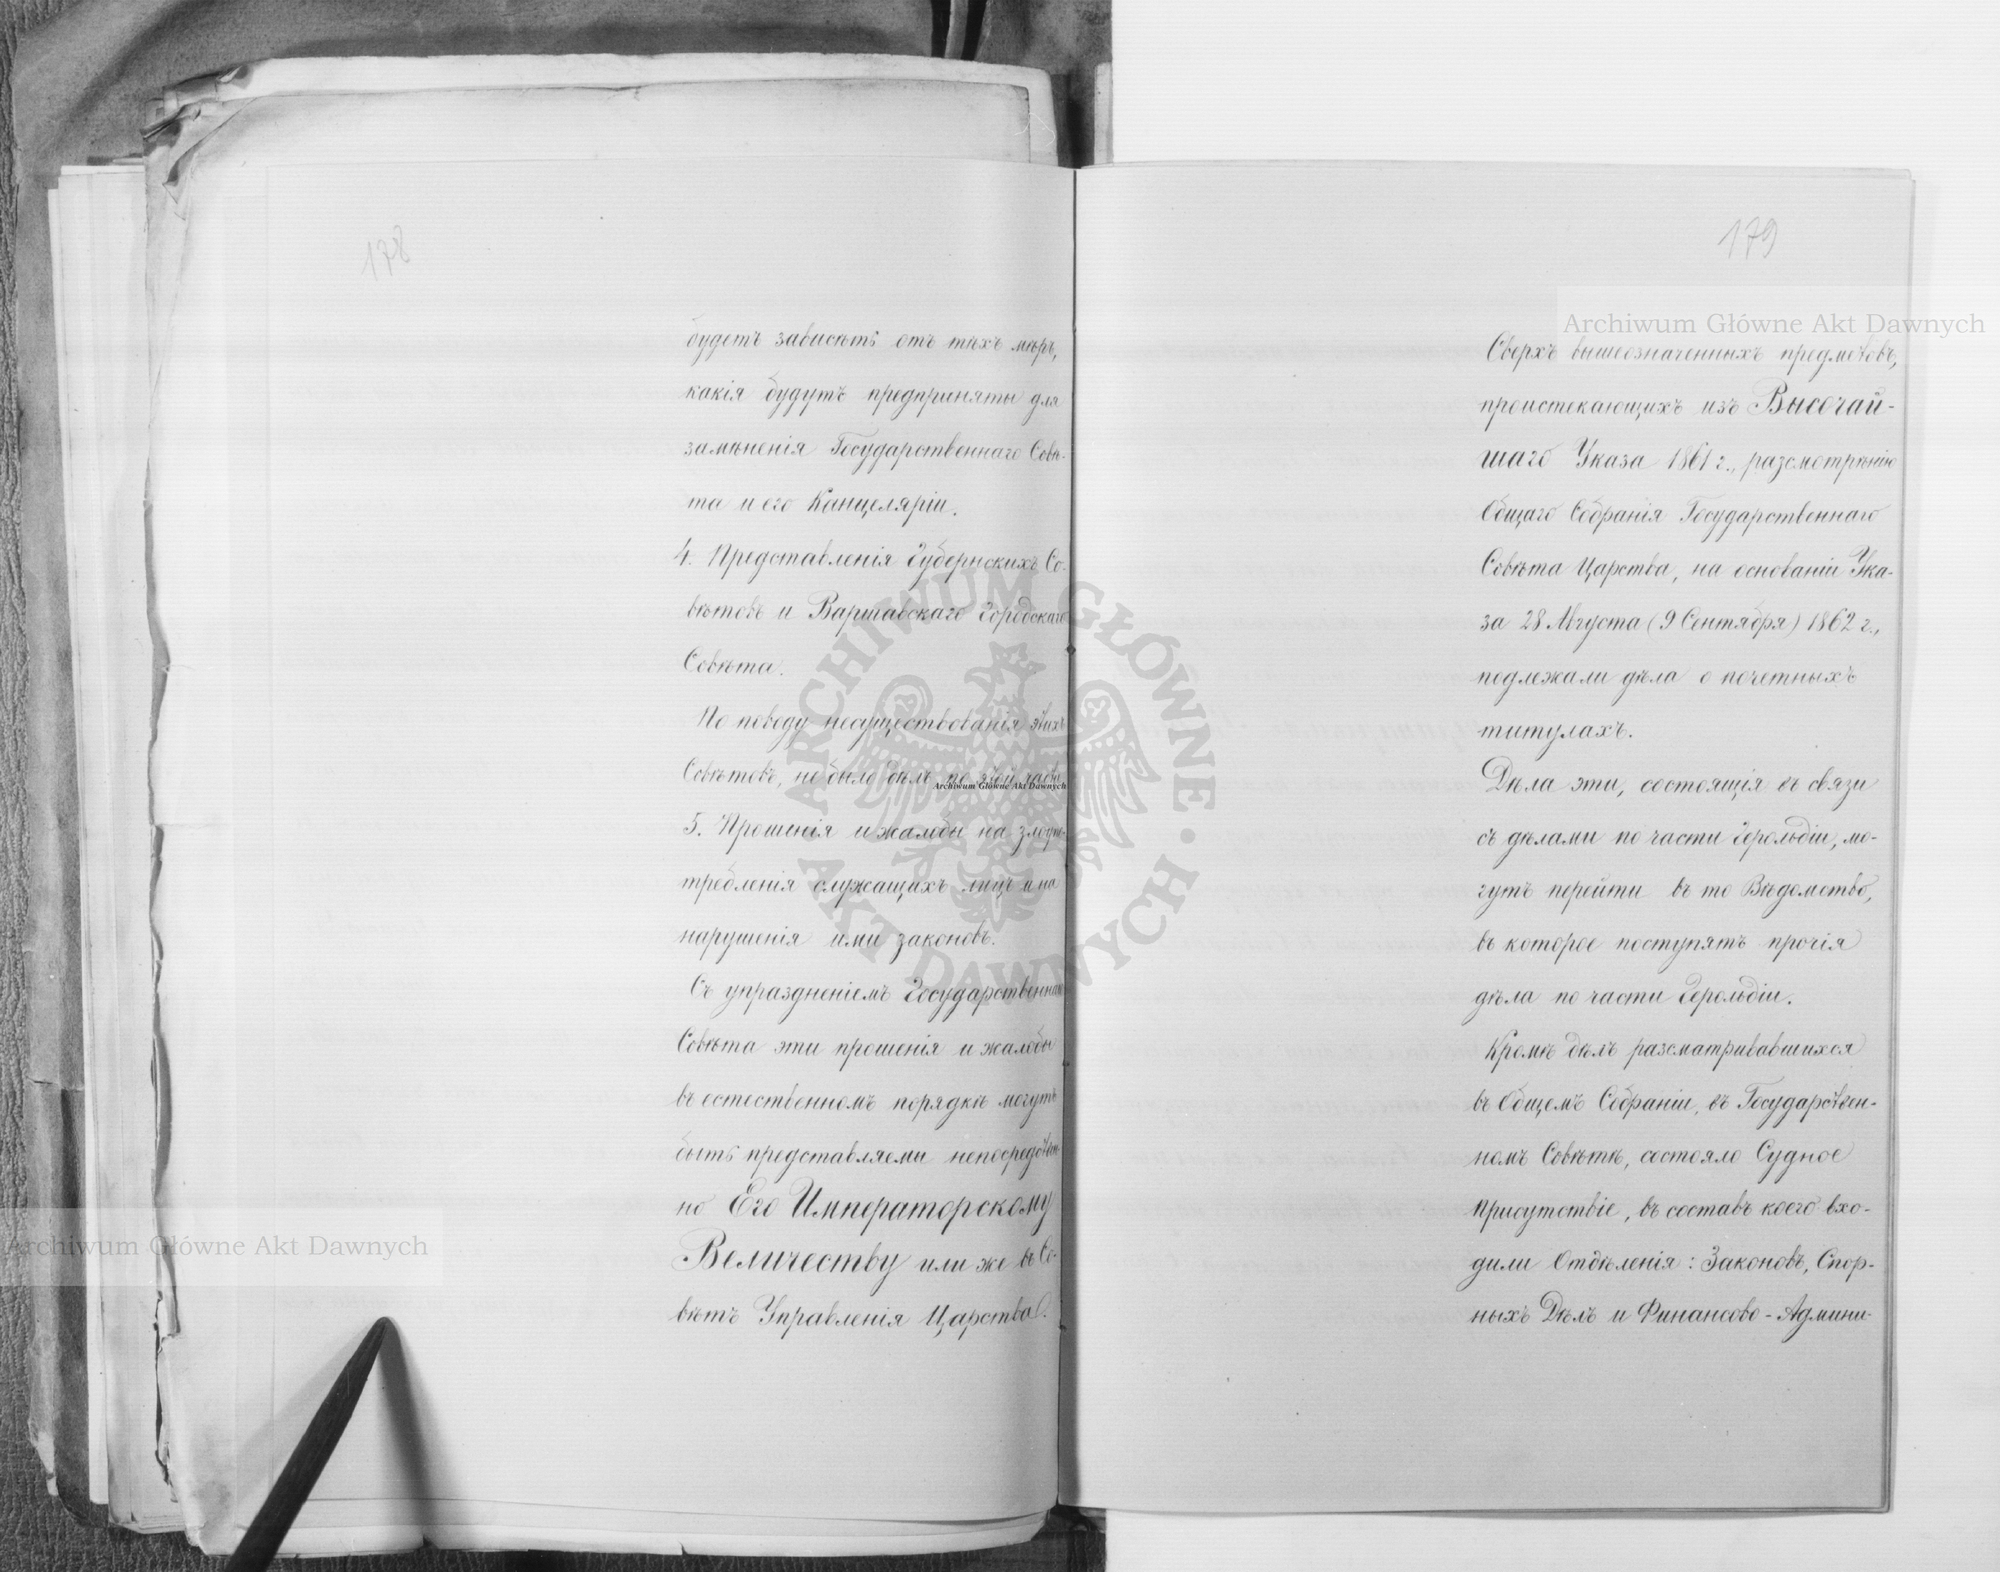 178
будетъ зависѣть отъ тѣхъ мѣръ,
какія будутъ предприняты для
замѣненія Государственнаго Совѣ-
та и его Канцеляріи.
4. Представленія Губернскихъ Со-
вѣтовъ и Варшавскаго Городскаго
Совѣта.
По поводу несуществованія этихъ
Совѣтовъ, не было дѣлъ по этой части.
5. Прошенія и жалобы на злоупо-
требленія служащихъ лицъ и на
нарушенія ими законовъ.
Съ упраздненіемъ Государственнаго
Совѣта эти прошенія и жалобы
въ естественномъ порядкѣ могутъ
быть представляемы непосредствен-
но Его Императорскому
Величеству или же въ Со-
вѣтъ Управленія Царства.
179
Сверхъ вышеозначенныхъ предметовъ,
проистекающихъ изъ Высочай-
шаго Указа 1861 г., разсмотрѣнію
Общаго Собранія Государственнаго
Совѣта Царства, на основаніи Ука-
за 28 Августа (9 Сентября) 1862 г.,
подлежали дѣла о почетныхъ
титулахъ.
Дѣла эти, состоящія въ связи
съ дѣлами по части Герольдіи, мо-
гутъ перейти въ то Вѣдомство,
въ которое поступятъ прочія
дѣла по части Герольдіи.
Кромѣ дѣлъ разсматривавшихся
въ Общемъ Собраніи, въ Государствен-
номъ Совѣтѣ, состояло Судное
Присутствіе, въ составъ коего вхо-
дили Отдѣленія: Законовъ, Спор-
ныхъ Дѣлъ и Финансово-Админи-
Archiwum Główne Akt Dawnych
Archiwum Główne Akt Dawnych
Archiwum Główne Akt Dawnych
ARCHIWUM GŁÓWNE AKT DAWNYCH